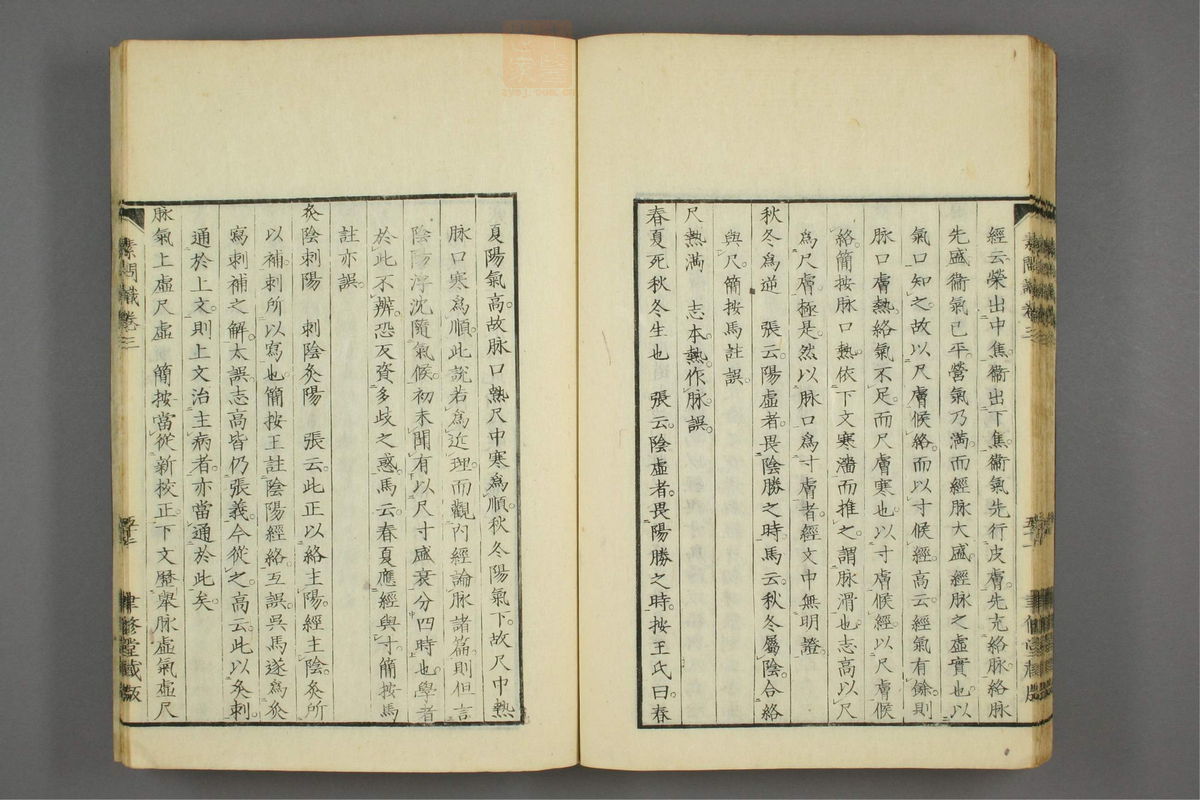 經云榮出中焦。衞出下焦。衞氣先行皮膚。先充絡脉。絡脉
先盛。衞氣已平。營氣乃滿。而經脉大盛。經脉之虛實也。以
氣口知之。故以尺膚候絡。而以寸候經。高云。經氣有餘。則
脉口膚熱。絡氣不足。而尺膚寒也。以寸膚候經。以尺膚候
絡。簡按脉口熱。依下文寒濇而推之。謂脉滑也。志高以尺
爲尺膚極是。然以脉口爲寸膚者。經文中無明證。
秋冬爲逆　張云。陽虛者。畏陰勝之時。馬云。秋冬屬陰。合絡
與尺。簡按馬註誤。
尺熱滿　志本。熱。作脉。誤。
春夏死秋冬生也　張云。陰虛者。畏陽勝之時。按王氏曰。春
夏陽氣高。故脉口熱。尺中寒爲順。秋冬陽氣下。故尺中熱
脉口寒爲順。此說若爲近理。而觀內經論脉諸篇。則但言
陰陽浮沈隨氣候。初未聞有以尺寸盛衰分四時也。學者
於此不辨。恐反資多歧之惑。馬云。春夏應經與寸。簡按馬
註亦誤。
灸陰刺陽　刺陰灸陽　張云。此正以絡主陽。經主陰。灸所
以補。刺所以寫也。簡按王註陰陽經絡。互誤。吳馬遂爲灸
寫刺補之解。太誤。志高皆仍張義。今從之。高云。此以灸刺
通於上文。則上文治主病者。亦當通於此矣。
脉氣上虛尺虛　簡按當從新校正。下文歷擧脉虛氣虛尺
素問識卷三
聿修堂藏版